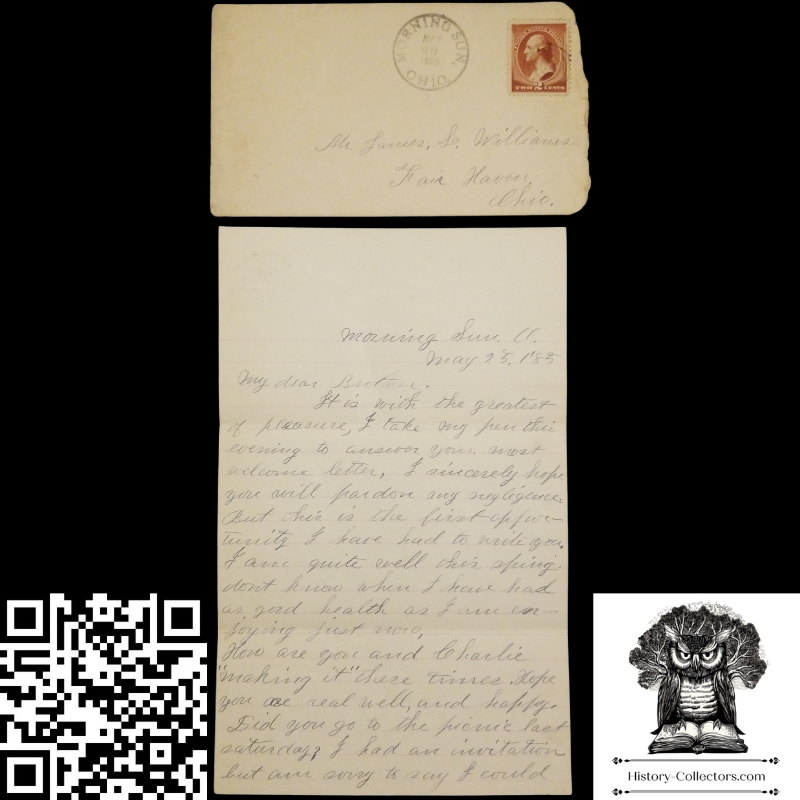 MORNING SUN,
MAY
28
1885
OHIO.
2 CENTS
Mr. James. S. Williams
Fair Haven,
Ohio.
Morning Sun. O.
May 25, 1'85
My dear Brother.
It is with the greatest
of pleasure, I take my pen this
evening to answer your most
welcome letter, I sincerely hope
you will pardon my negligence.
But this is the first oppor-
tunity I have had to write you.
I am quite well this spring.
dont know when I have had
as good health as I am en-
joying just now,
How are you and Charlie
"making it" these times. Hope
you are real well, and happy.
Did you go to the picnic last
saturday? I had an invitation
but am sorry to say I could
History-Collectors.com